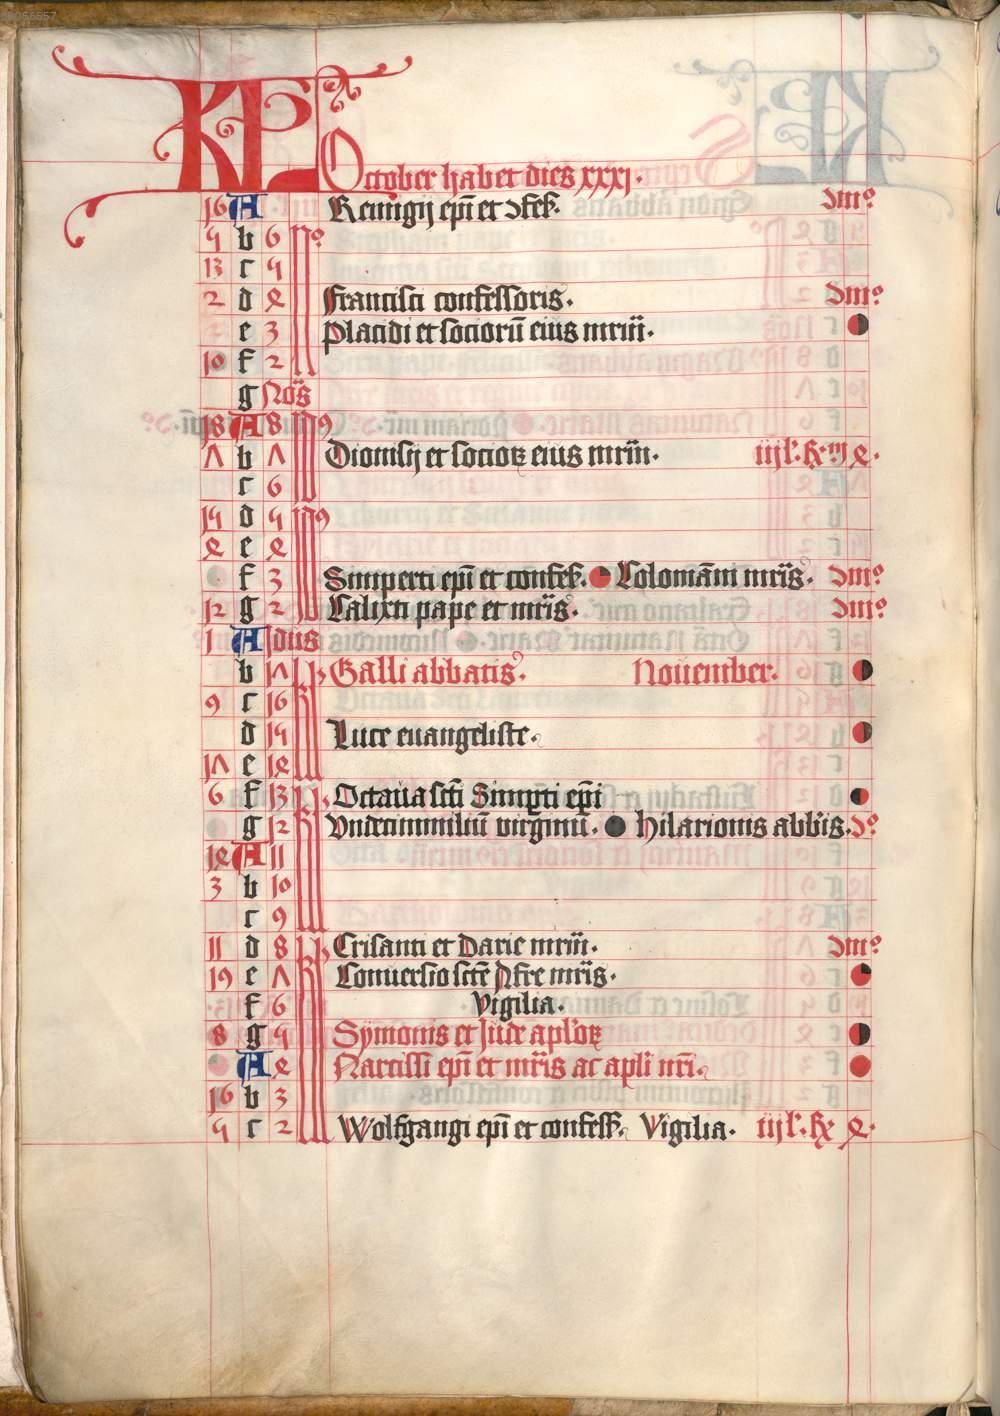 KL October habet dies xxxj.
16 A Remigij ep̄i et ꝯfeſ. dm̄o
4 b 6 No
13 c 4
2 d 4 Franciſci confeſſoris. dm̄o
e 3 Placidi et ſocioru̅ eius mr̄m̄.
10 f 2
g Nōs
18 A 8 Id9
7 b 7 Dioniſij et ſocioꝝ eius mr̄m̄. iij l'.
c 6
14 d 5
4 e 4
f 3 Simperti ep̄i et confeſ. Colomāni mr̄is. dm̄o
12 g 2 Calixti pape et mr̄is. dm̄o
1 A Idus
b 17 Galli abbatis. Nouember.
9 c 16
d 15 Luce euangeliſte.
17 e 14
6 f 13 Octaua ſc̄ti Simp̲ti ep̄i
g 12 Vndecimmiliu̅ virginu̅. Hilarionis abb̄is. do
14 A 11
3 b 10
c 9
11 d 8 Criſanti et Darie mr̄m̄. dm̄o
19 e 7 Conuerſio ſc̄te Afre mr̄is.
f 6 Vigilia.
8 g 5 Sÿmonis et Jude apl'oꝝ
A 4 Narciſſi ep̄i et mr̄is ac apl'i nr̄i.
16 b 3
5 c 2 Wolfgangi ep̄i et confeſſ. Vigilia. iij l'.